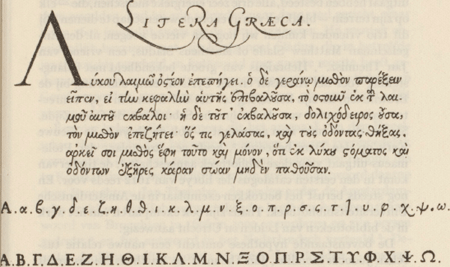 LITERA GRÆCA.
Λύκου λαιμῷ ὀστέον ἐπεπήγει. ὁ δὲ γεράνῳ μισθὸν παρέξειν
εἶπεν, εἰ τὴν κεφαλὴν αὐτῆς ἐπιβαλοῦσα, τὸ ὀστοῦν ἐκ τοῦ λαι-
μοῦ αὐτοῦ ἐκβάλοι. ἡ δὲ τοῦτ' ἐκβαλοῦσα, δολιχόδειρος οὖσα,
τὸν μισθὸν ἐπεζήτει. ὅς τις γελάσας, καὶ τοὺς ὀδόντας θήξας,
ἀρκεῖ σοι μισθὸς ἔφη τοῦτο καὶ μόνον, ὅτι ἐκ λύκου στόματος καὶ
ὀδόντων ἐξῇρες κάραν σῶαν μηδὲν παθοῦσαν.
Α. α. β. γ. δ. ε. ζ. η. θ. ι. κ. λ. μ. ν. ξ. ο. π. ρ. σ. ς. τ. υ. φ. χ. ψ. ω.
Α. Β. Γ. Δ. Ε. Ζ. Η. Θ. Ι. Κ. Λ. Μ. Ν. Ξ. Ο. Π. Ρ. Σ. Τ. Υ. Φ. Χ. Ψ. Ω.